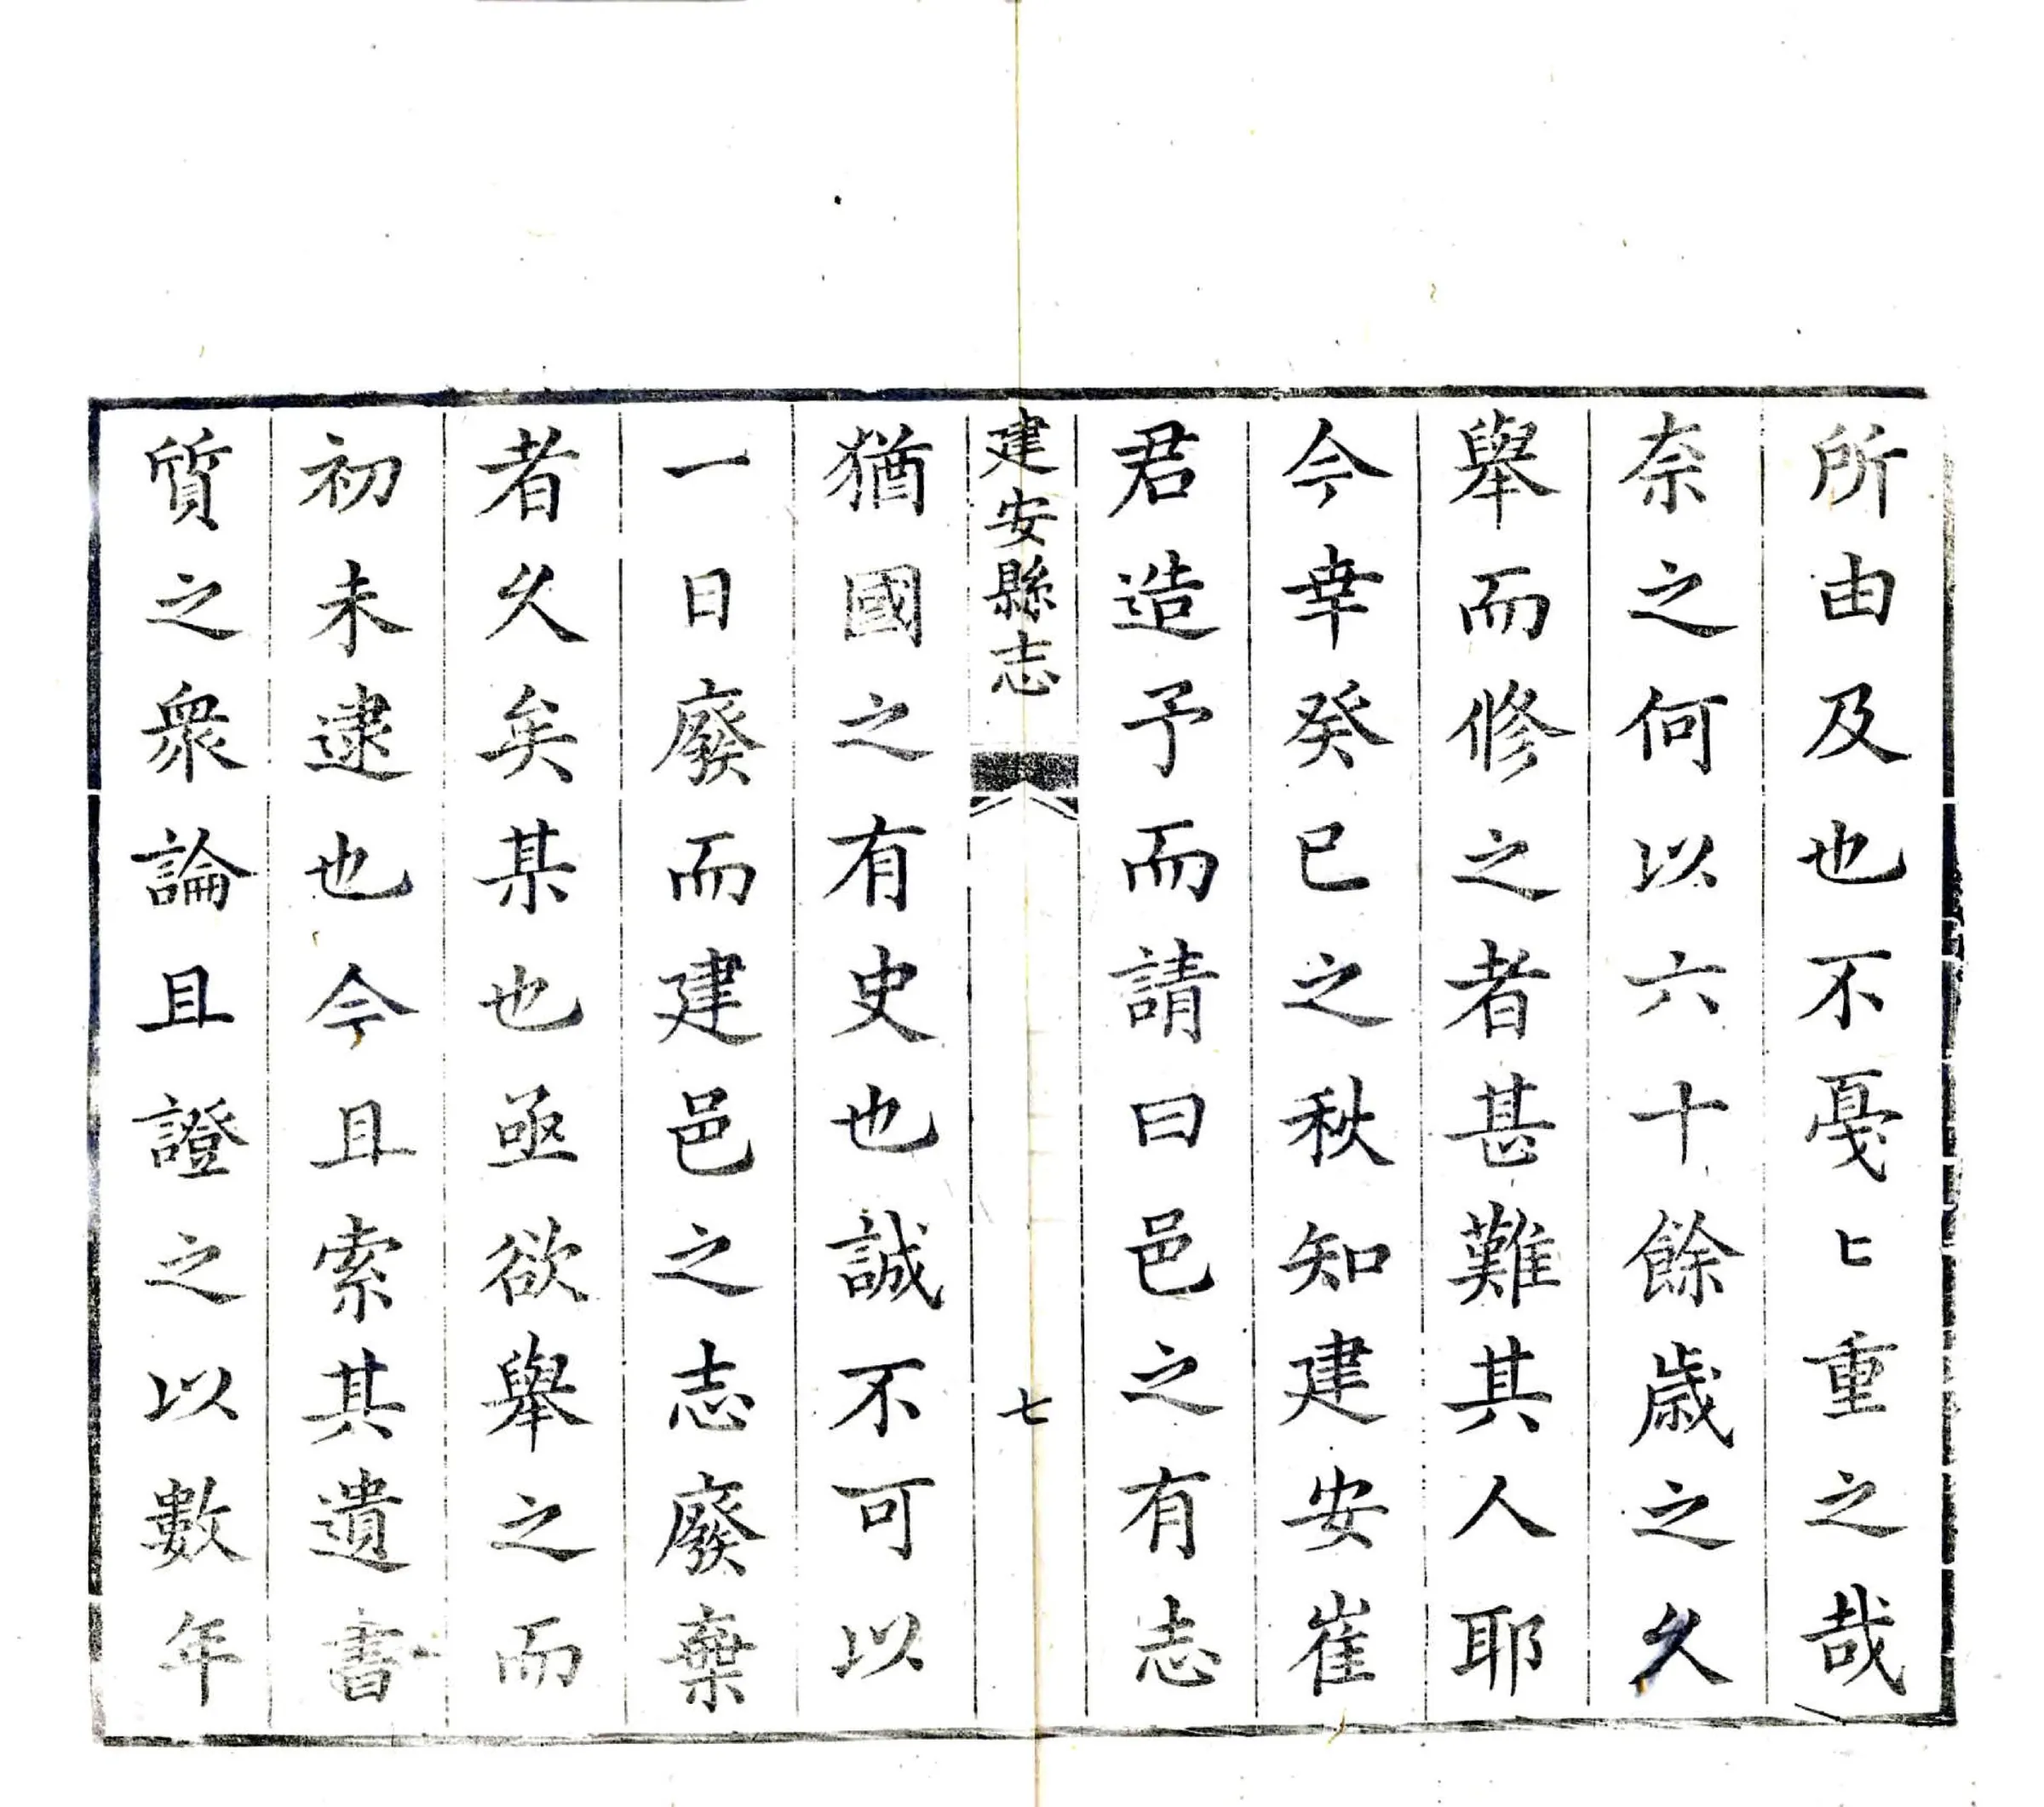 所由及也不戞〻重之哉
奈之何以六十餘歳之久
舉而修之者甚難其人耶
今幸癸巳之秋知建安崔
君造予而請曰邑之有志
建安縣志
七
猶國之有史也誠不可以
一日廢而建邑之志廢棄
者久矣某也亟欲舉之而
初未逮也今且索其遺書
質之衆論且證之以數年